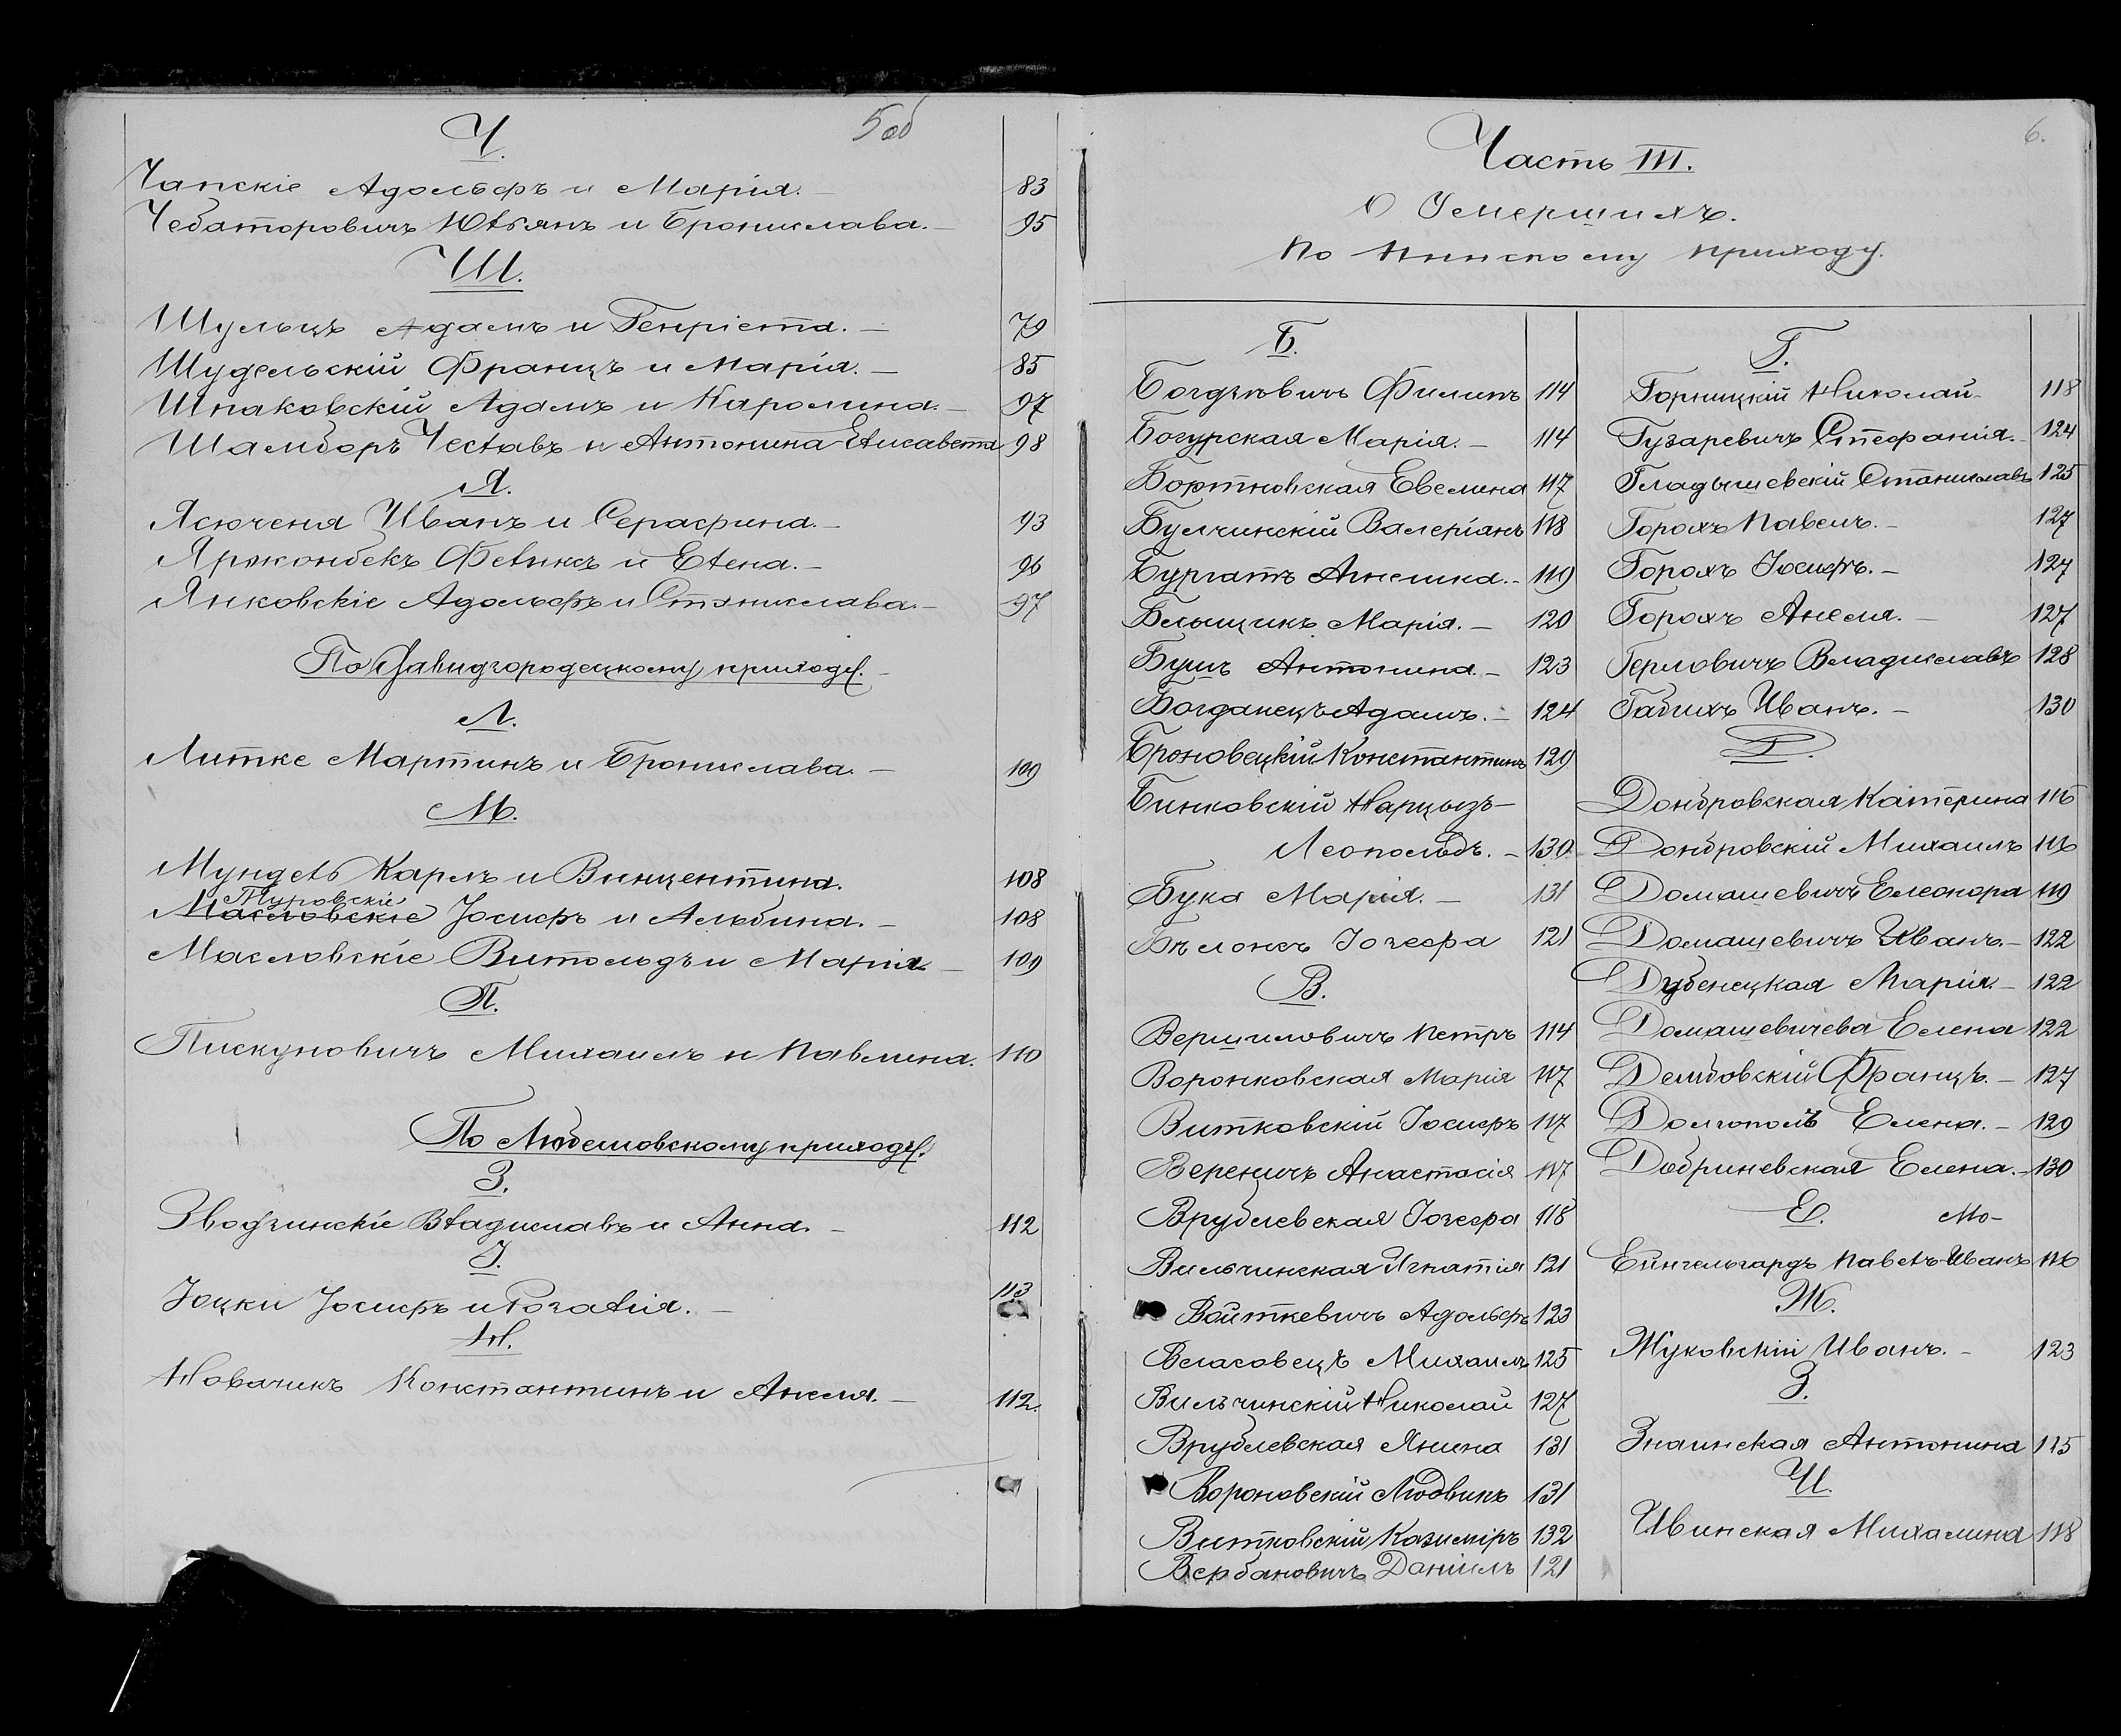 5об
Ч.
Чапскіе Адольфъ и Марія. — 83
Чебаторовичъ Юльянъ и Брониславa. — 95
Ш.
Шульцъ Адамъ и Генріета. — 79
Шудельскій Францъ и Марія. — 85
Шпаковскій Адамъ и Каролина. — 97
Шамборъ Чеславъ и Антонина-Елисавета 98
Я.
Ясюченя Иванъ и Серафина. — 93
Яржонбекъ Феликсъ и Елена. — 96
Янковскіе Адольфъ и Станислава. — 97
По Давидгородецкому приходу. —
Л.
Литке Мартинъ и Бронислава. — 109
М.
Мундель Карлъ и Винцентина. 108
Туровскіе
Масловскіе Іосифъ и Альбина. — 108
Масловскіе Витольдъ и Марія — 109
П.
Пискуновичъ Михаилъ и Павлина. 110
По Любешовскому приходу.
З.
Зводзинскіе Владиславъ и Анна. — 112
І.
Іоцки Іосифъ и Розалія. — 113
Н.
Новачикъ Константинъ и Анеля. — 112.
6.
Часть III.
О Умершихъ.
По Пинскому приходу.
Б.
Богдзевичъ Филипъ 114
Богурская Марія. — 114
Бортновская Евелина 117
Булчинскій Валеріанъ 118
Бургатъ Анелина. — 119
Блыщикъ Марія. — 120
Бушъ Антонина. — 123
Богданецъ Адамъ. — 124
Броновецкій Константинъ 129
Бинковскій Нарцызъ-
Леопольдъ. — 130
Бука Марія. — 131
Бѣлонсъ Іозефа 121
В.
Вершиловичъ Петръ 114
Воронковская Марія 117
Витковскій Іосифъ 117
Вереничъ Анастасія 117
Врублевская Іозефа 118
Вильчинская Игнатія 121
Войткевичъ Адольфъ 123
Власовецъ Михаилъ 125
Вильчинскій Николай 127
Врублевская Янина 131
Вороновскій Людвикъ 131
Витковскій Казиміръ 132
Вербановичъ Даніилъ 121
Г.
Горницкій Николай 118
Гузаревичъ Стефанія. — 124
Гладышевскій Станиславъ 125
Горохъ Павелъ. — 127
Горохъ Іосифъ. — 127
Горохъ Анеля. — 127
Герловичъ Владиславъ 128
Габихъ Иванъ. — 130
Д.
Домбровская Катерина 116
Домбровскій Михаилъ 116
Домашевичъ Елеонора 119
Домашевичъ Иванъ. — 122
Дубенецкая Марія — 122
Домашевичева Елена 122
Дембовскій Францъ. — 127
Долгополъ Елена. — 129
Добриневская Елена. — 130
Е. Мо-
Енгельгардъ Павелъ-Иванъ 116
Ж.
Жуковскій Иванъ. — 123
З.
Знаинская Антонина 115
И.
Ивинская Михалина 118